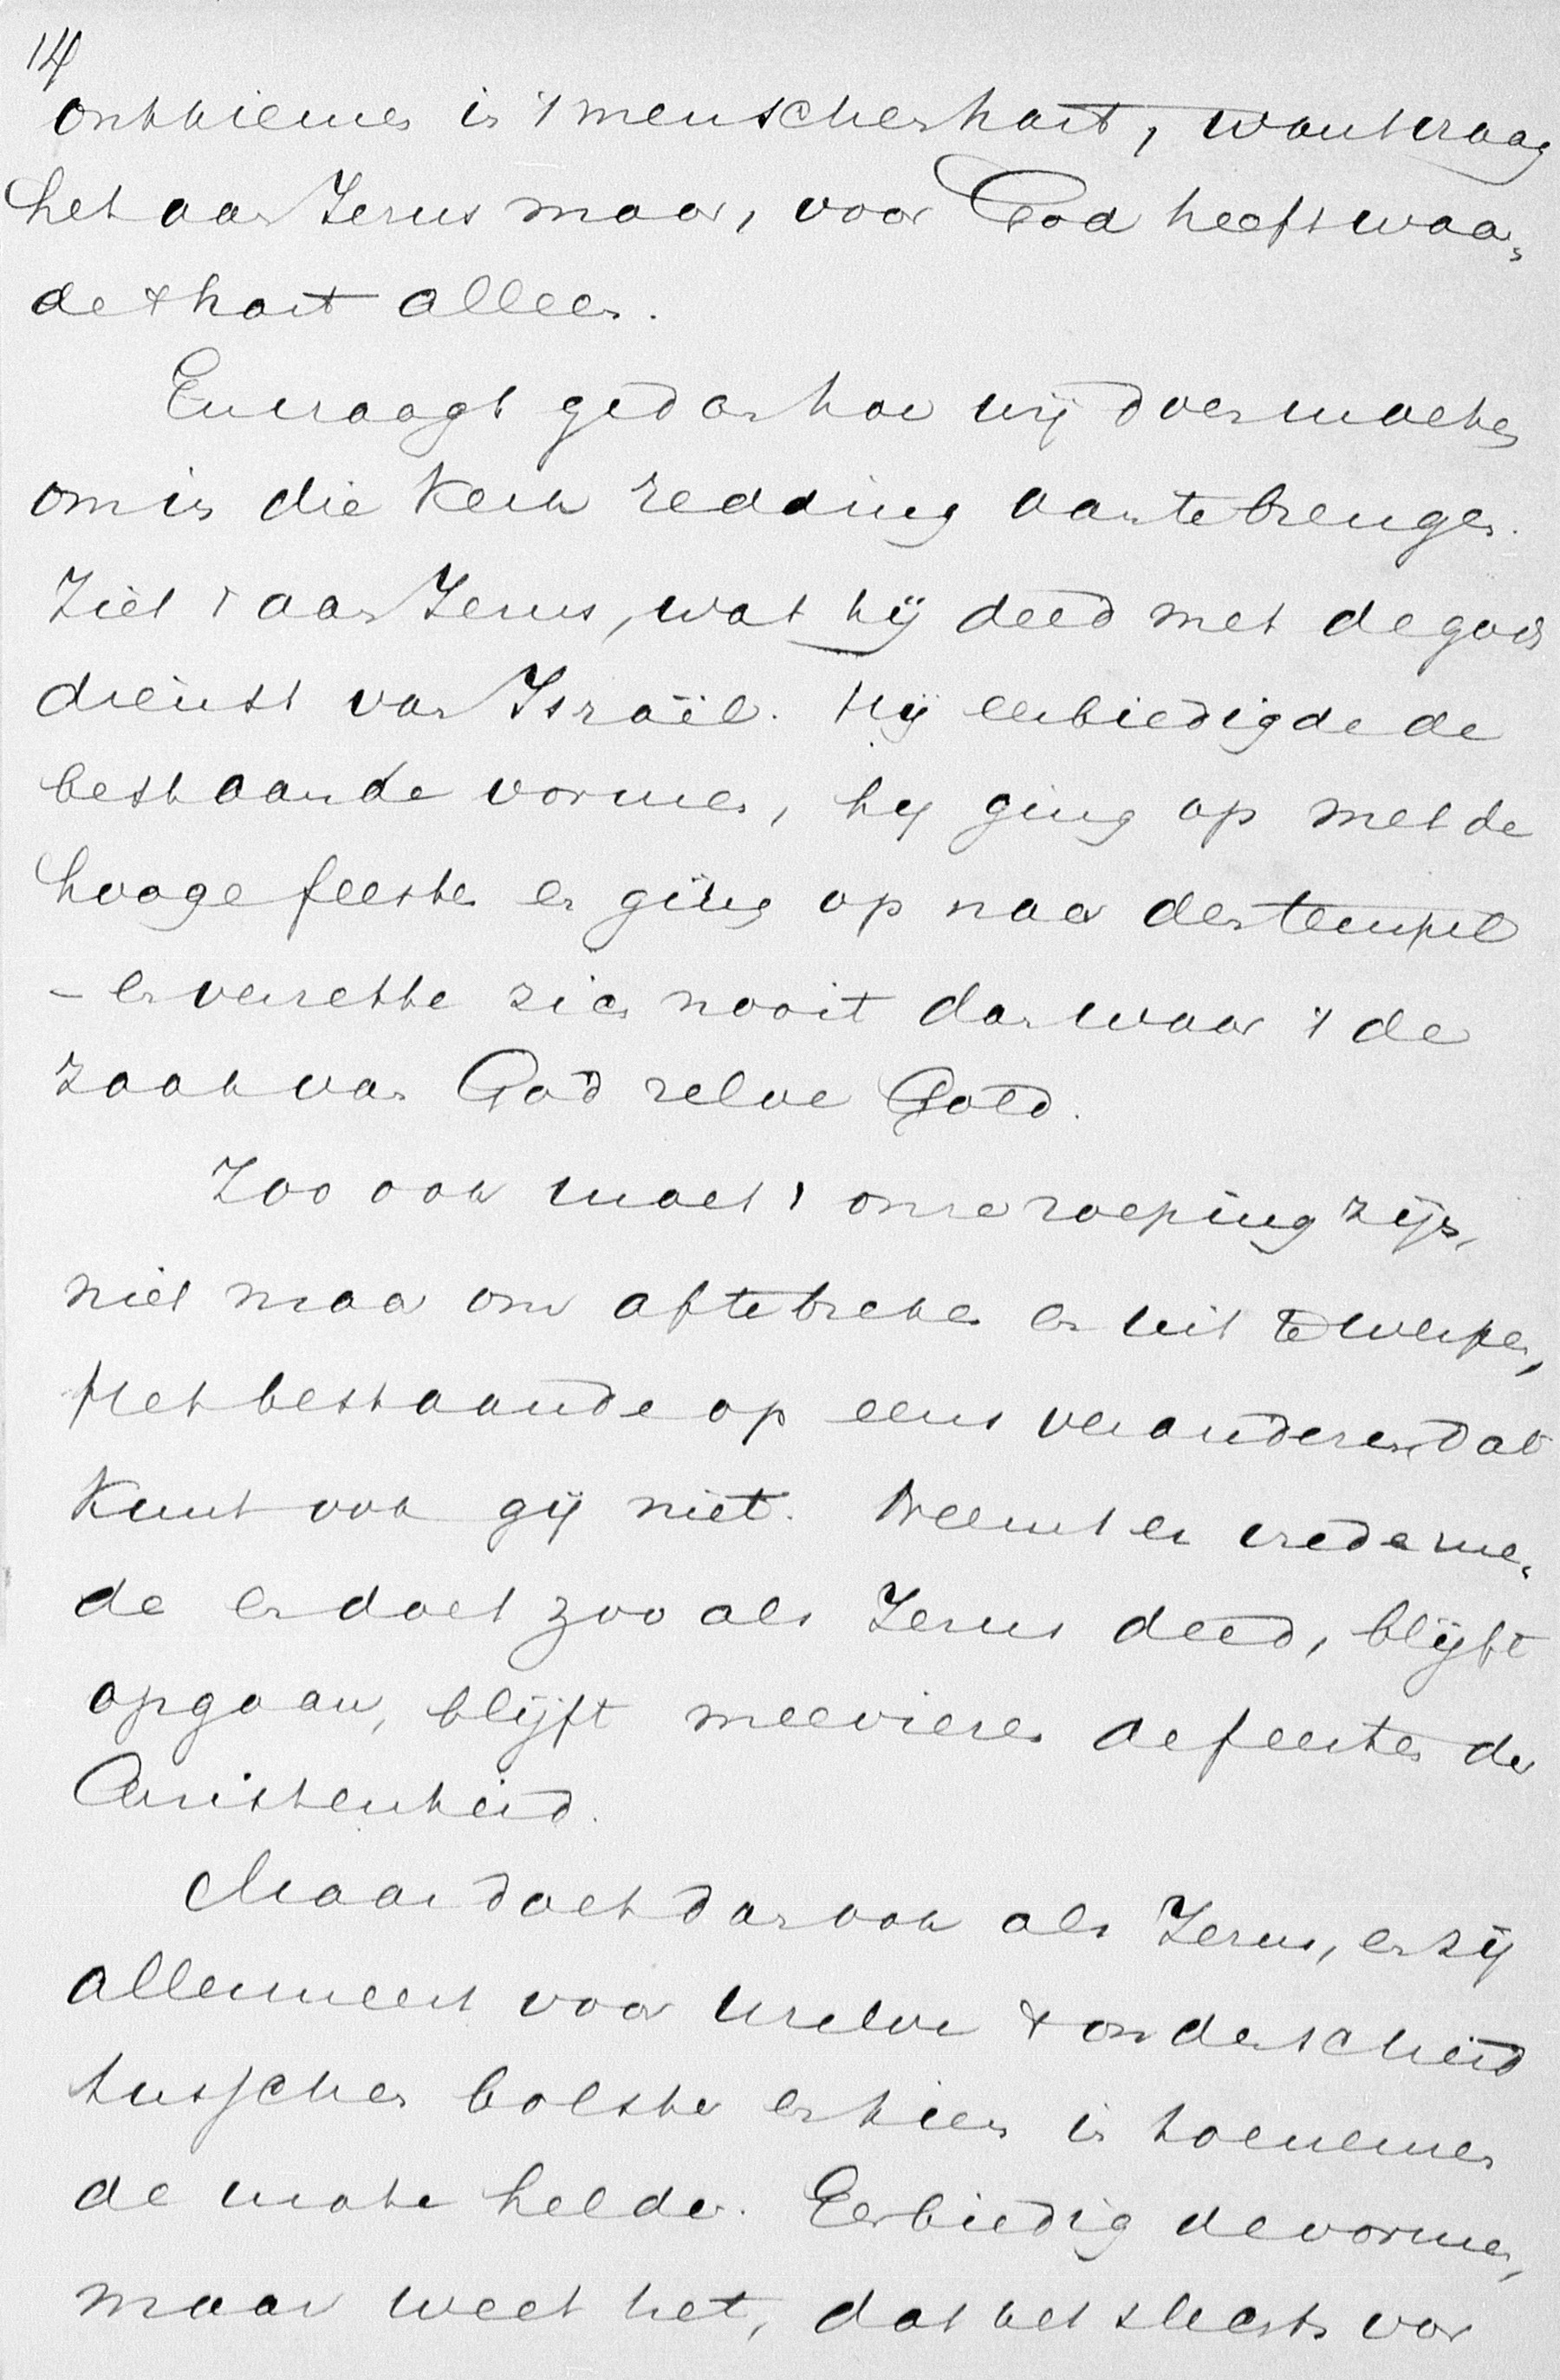 14
ontkiemen in 't menschenhart, want vraag
het aan Jezus maar, voor God heeft waar-
de 't hart alleen.
En vraagt ge dan hoe wij doen moeten
om in die kerk redding aan te brengen.
Ziet 't aan Jezus, wat hij deed met de gods
dienst van Israël. Hij eerbiedigde de
bestaande vormen, hij ging op met de
hooge feesten en ging op naar den tempel
– en verzette zich nooit dan waar 't de
zaak van God zelve gold.
Zoo ook moet 't onze roeping zijn,
niet maar om af te breken en uit te werpen,
Het bestaande op eens veranderen, dat
kunt ook gij niet. Neemt er vrede me-
de en doet zoo als Jezus deed, blijft
opgaan, blijft meevieren de feesten der
Christenheid.
Maar doet dan ook als Jezus, en zij
allermeest voor u zelve 't onderscheid
tusschen bolster en kiem in toenemen
de mate helder. Eerbiedig de vormen,
maar weet het, dat het slechts vor